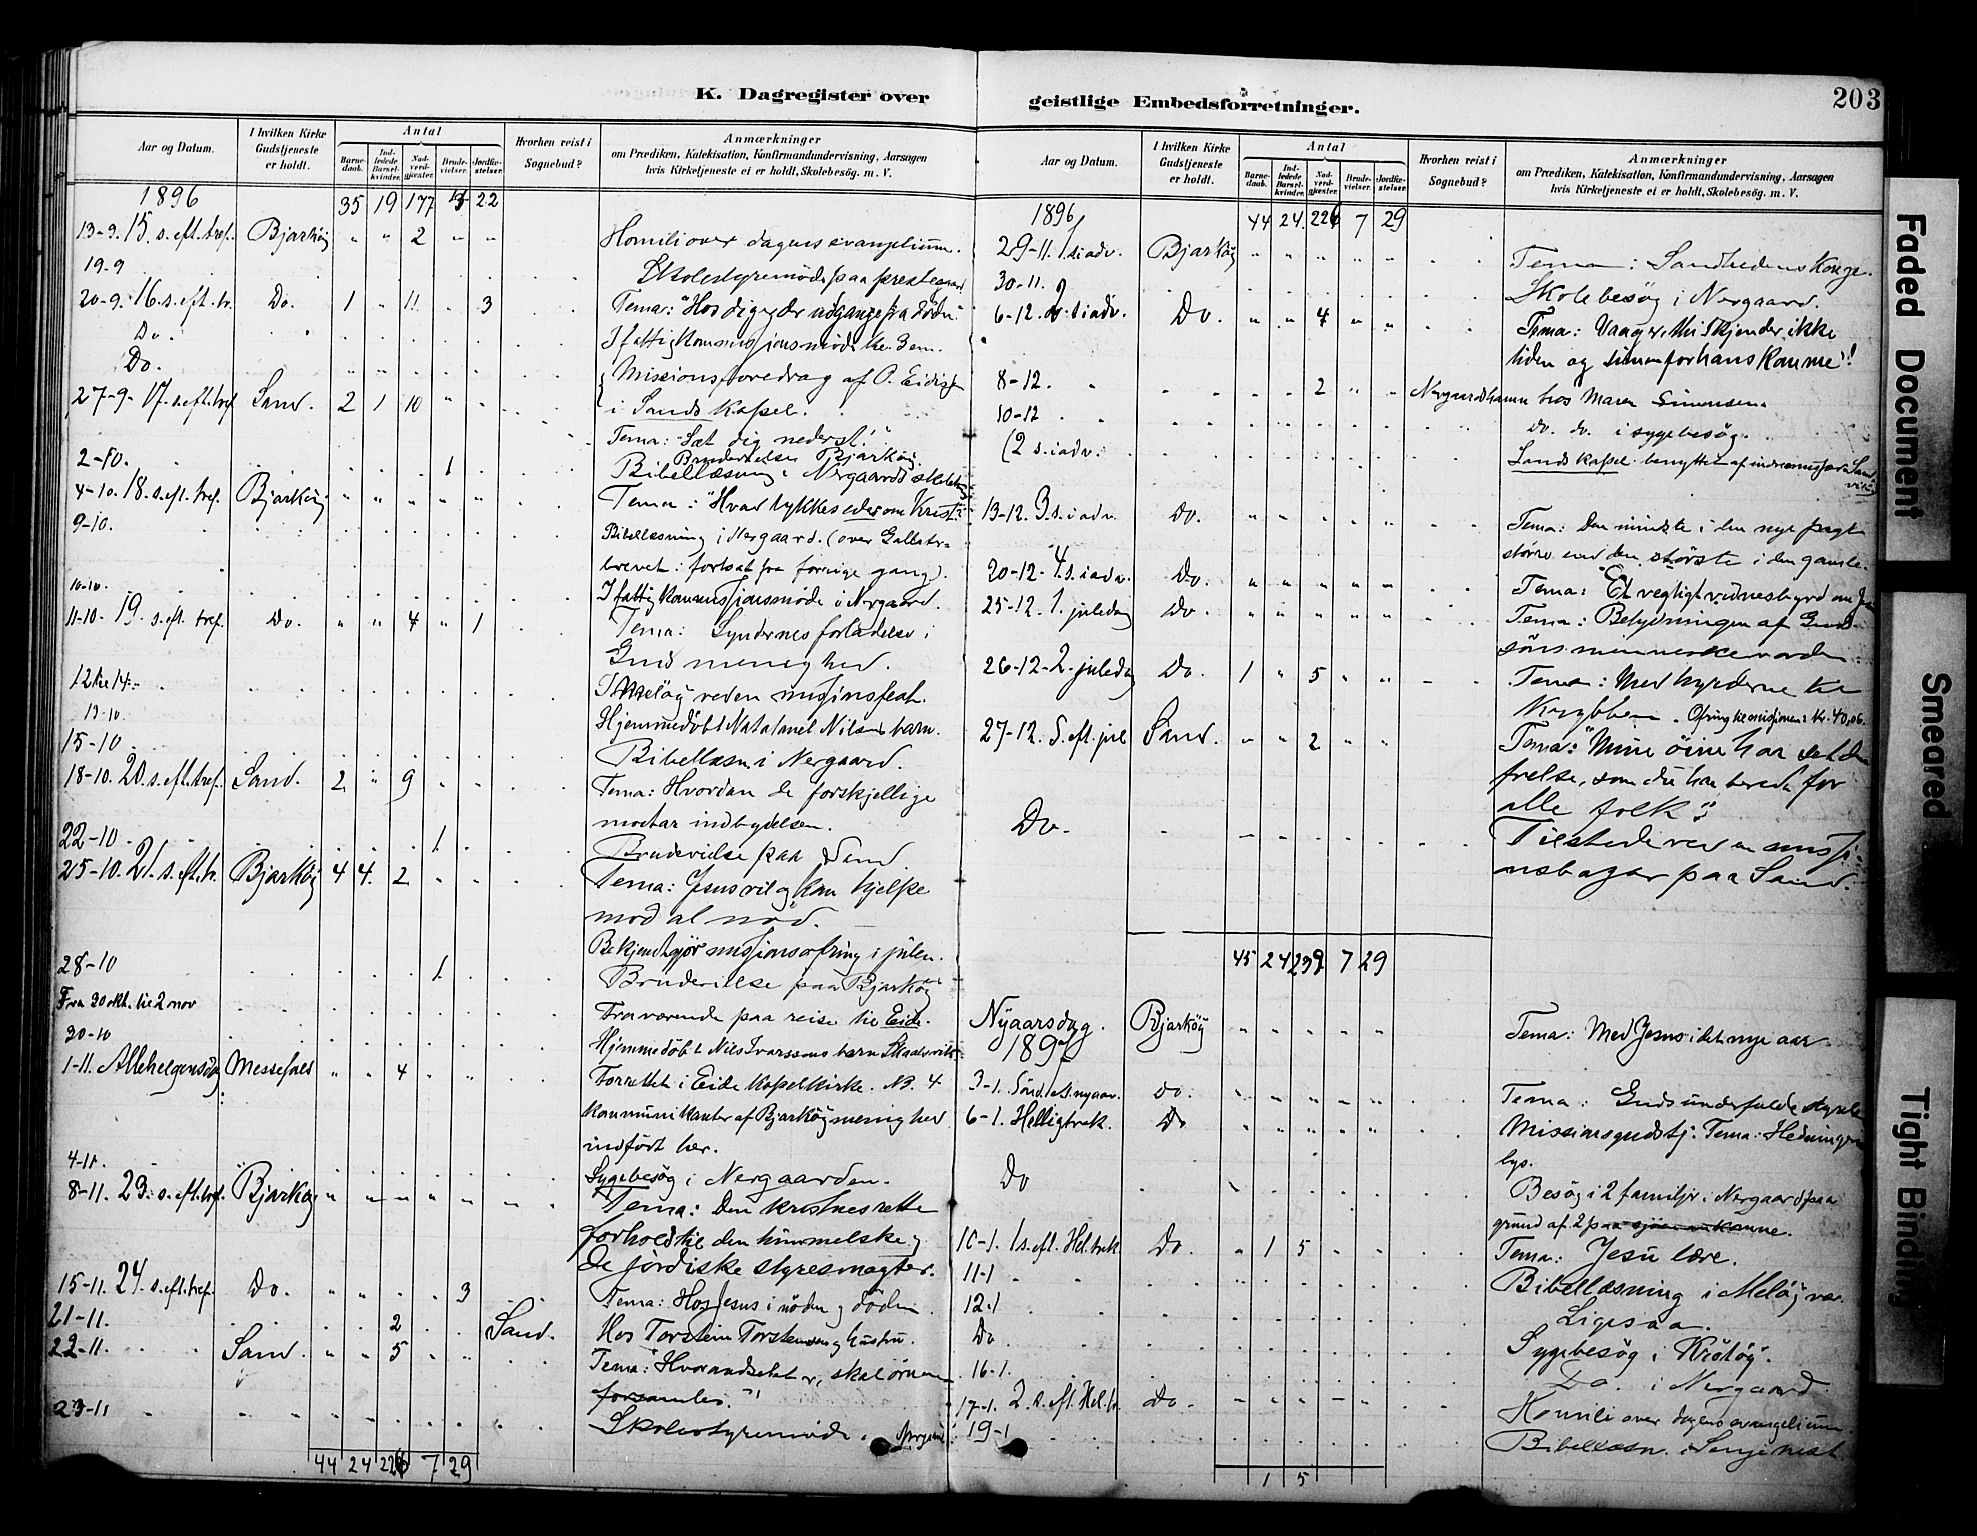 K. Dagregister over
Aar og Datum.
I hvilken Kirke Gudstjeneste er holdt.
Antal
Barnedaab.
Indledede Barselkvinder.
Nadverdgjæster.
Brudevielser.
Jordfæstelser.
Hvorhen reist i Sognebud?
Anmærkninger
om Prædiken, Katekisation, Konfirmandundervisning, Aarsagen
hvis Kirketjeneste ei er holdt, Skolebesøg. m. V.
1896 35 19 177 22
13-9. 15. s. eft. tref. Bjarkøy " " 2 " " Homili over dagens evangelium.
19.9 Skolestyremøde paa prestegaard
20-9. 16. s. eft. tr. Do. 1 " 11 " 3 Tema: "Hos dig er udgange fra døden"
Do. I fattigkommissjonsmøde kl. 3 em.
Do. Missionsforedrag af P. Eidissen
i Sands kapel.
27-9- 17. s. eft. tref Sand. 2 1 10 " Tema: Sæt dig nederst!"
2-10. 1 Brudevielse Bjarkøy.
Bibellæsning i Nergaards skole
4-10. 18. s. eft. tref. Bjarkøy " " " " " Tema: "Hvad tykkes eder om Krist"?
9-10. Bibellæsning i Nergaard. (over Galater-
brevet: fortsat fra forrige gang).
10-10. I fattigkommissjonsmøde i Nergaard.
11-10. 19. s. eft. tref. Do. " " 4 " 1 Tema: Syndernes forladelse i
Guds menighed.
12 til 14. I Meløy ved en misjonsfest.
13-10. Hjemmedøbt Natalael Nilsens barn.
15-10. Bibellæsn. i Nergaard.
18-10. 20. s. eft. tref. Sand. 2 " 9 " Tema: Hvordan de forskjellige
modtar indbydelsen.
22-10 1 Brudevielse paa Sand
25-10. 21. s. eft. tr. Bjarkøy 4 4. 2 " Tema: Jesus vil og kan hjelpe
mod al nød.
Bekjendtgjør misjonsofring i julen.
28-10 1 Brudevielse paa Bjarkøy
Fra 30 okt. til 2 nov Fraværende paa reise til Eide.
30-10 Hjemmedøbt Nils Ivarssons barn
1-11. Allehelgensdag Messefald " " 4 " " Forrettet i Eide kapelkirke. NB. 4
kommunikanter af Bjarkøy menighed
indført her.
4-11. Sygebesøg i Nergaarden.
8-11. 23. s. eft. tref. Bjarkøy " " " " " Tema: Den kristnes rette
forhold til den himmelske og
de jordiske styresmagter.
15-11. 24. s. eft. tref. Do. " " . . 3 Tema: Hos Jesus i nøden og døden
21-11. 2 Sand. Hos Torstein Torstensen og hustru.
22-11. Sand. " " 5 Tema: "Hvor aadselet er, skal ørnene
forsamles."!
23-11 Skolestyremøde.
44 24 226 7 29
geistlige Embedsforretninger.
203
Aar og Datum.
I hvilken Kirke Gudstjeneste er holdt.
Antal
Barnedaab.
Indledede Barselkvinder.
Nadverdgjæster.
Brudevielser.
Jordfæstelser.
Hvorhen reist i Sognebud?
Anmærkninger
om Prædiken, Katekisation, Konfirmandundervisning, Aarsagen
hvis Kirketjeneste ei er holdt, Skolebesøg. m. V.
1896 44 24. 226 7 29
29-11. 1. s. i adv. Bjarkøy " " " " " Tema: Sandhedens Konge.
30-11. Skolebesøg i Nergaard.
6-12. 2. s. i adv. Do. " " 4 " " Tema: Vaag er, thi I kjender ikke
tiden og timen for hans komme"!
8-12. 2 Nergaardshamn hos Maren Simonsen.
10-12 do. do. i sygebesøg.
(2 s. i adv. Sands kapel benyttet af
13-12. 3. s. i adv. Do. " " " " " Tema: Den mindste i den nye pagt
større end den største i den gamle.
20-12- 4. s. i adv. Do. " " " " " Tema: Et vegtigt vidnesbyrd om
25-12. 1. juledag Do. " " " " " Tema: Betydningen af Guds
søns menneskevorden.
26-12-2. juledag Do 1 " 5 " " Tema: Med hyrderne til
Krybben. Ofring til misjonen: Kr. 40,06.
27-12. S. eft. jul Sand. " " 2 " " Tema: "Mine øine har set din
frelse, som du har beredt for
alle folk".
Do. Tilstede ved en misjo-
nsbasar paa Sand.
45 24 239 7 29
Nyaarsdag. 1897 Bjarkøy " " " " " Tema: Med Jesus i det nye aar.
3-1. Sønd. eft. nyaar. Do. " " " " " Tema: Guds underfulde styrelse
6-1. Helligtrek. Do " " " " " Missionsgudstj. Tema: Hedningernes
lys.
Do Besøg i 2 familjer i Nergaard paa
grund af 2 paa sjøen omkomne.
10-1. 1 s. eft. Hel. trek Do. " 1 5 " " Tema: Jesu lære.
11-1 Bibellæsning i Meløyvær.
12-1 Ligesaa.
Do Sygebesøg i Krøtøy.
16-1. Do. i Nergaard.
17-1. 2. s. eft. Hel. tr. Do. - - - - - Homili over dagens evangelium
19-1 Bibellæsn. i
1 5
Faded Document
Smeared
Tight Binding